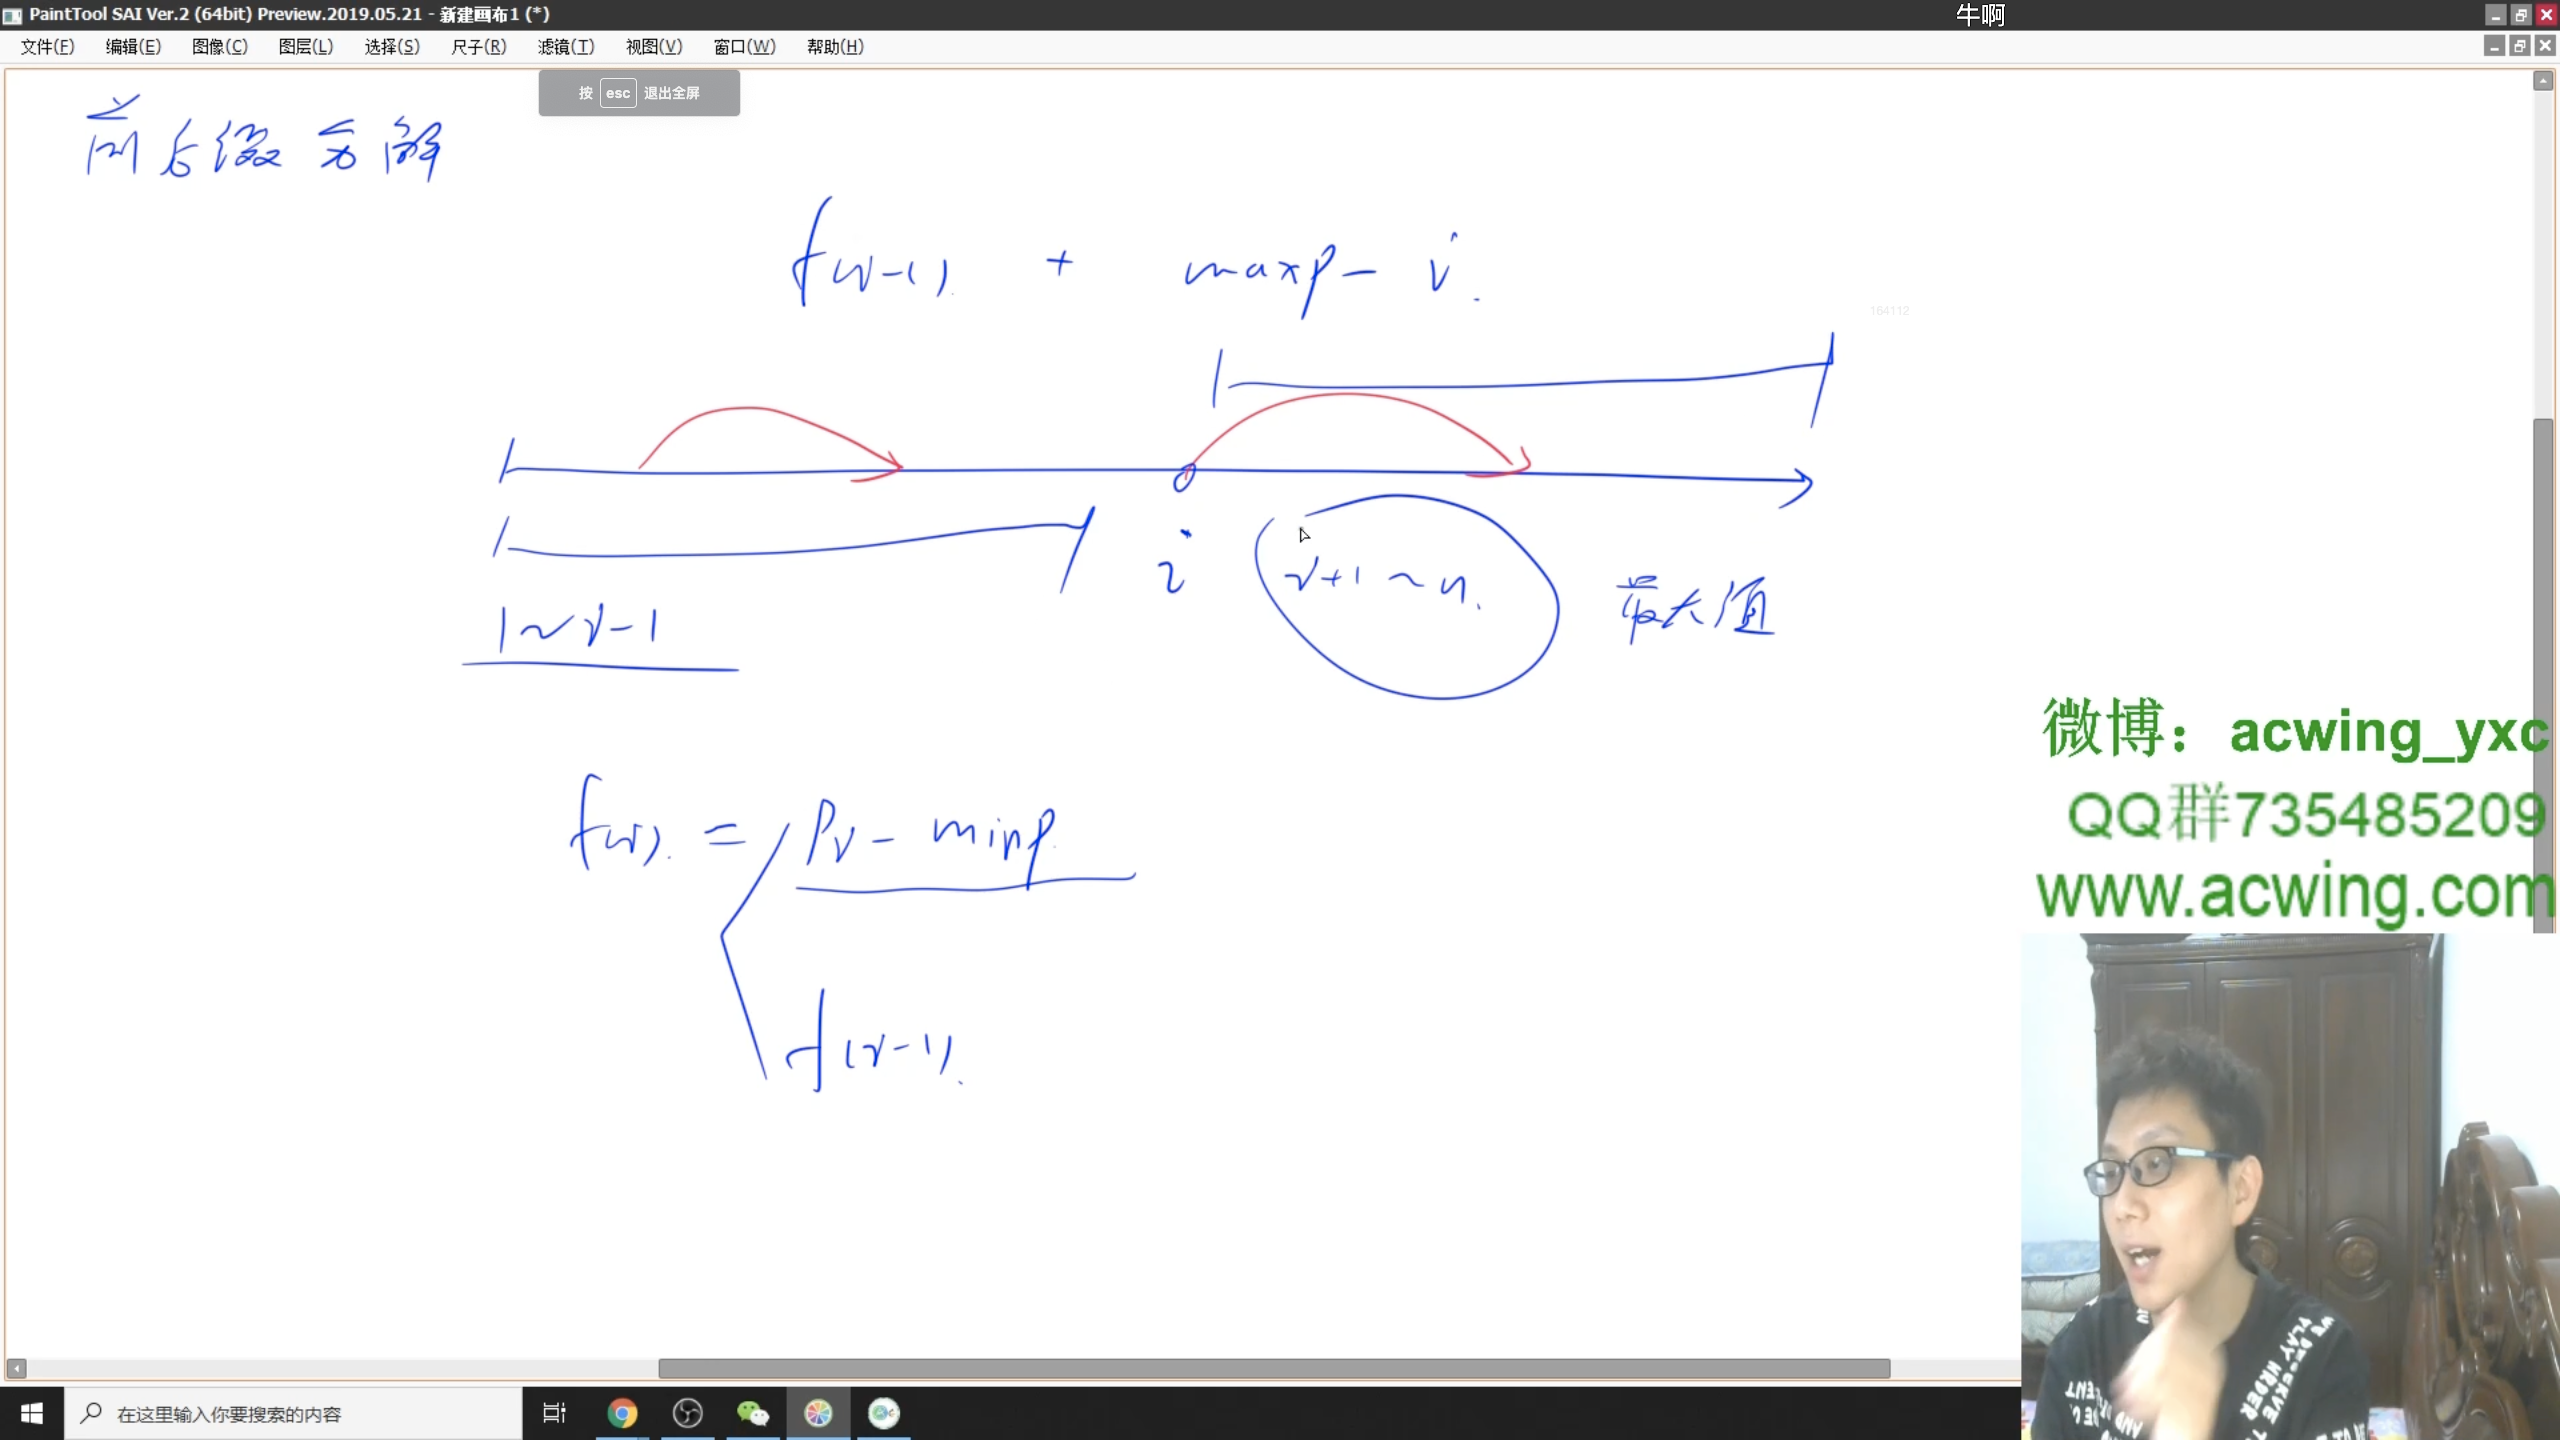 PaintTool SAI Ver.2 (64bit) Preview.2019.05.21 - 新建画布1 (*)
牛啊
文件(F) 编辑(E) 图像(C) 图层(L) 选择(S) 尺子(R) 滤镜(T) 视图(V) 窗口(W) 帮助(H)
按 esc 退出全屏
前后缀分解
f(i-1) + maxp - i
164112
i
i+1 ~ n
最大值
1 ~ i-1
微博：acwing_yxc
QQ群735485209
www.acwing.com
f(i) = Pi - minp
f(i-1)
在这里输入你要搜索的内容